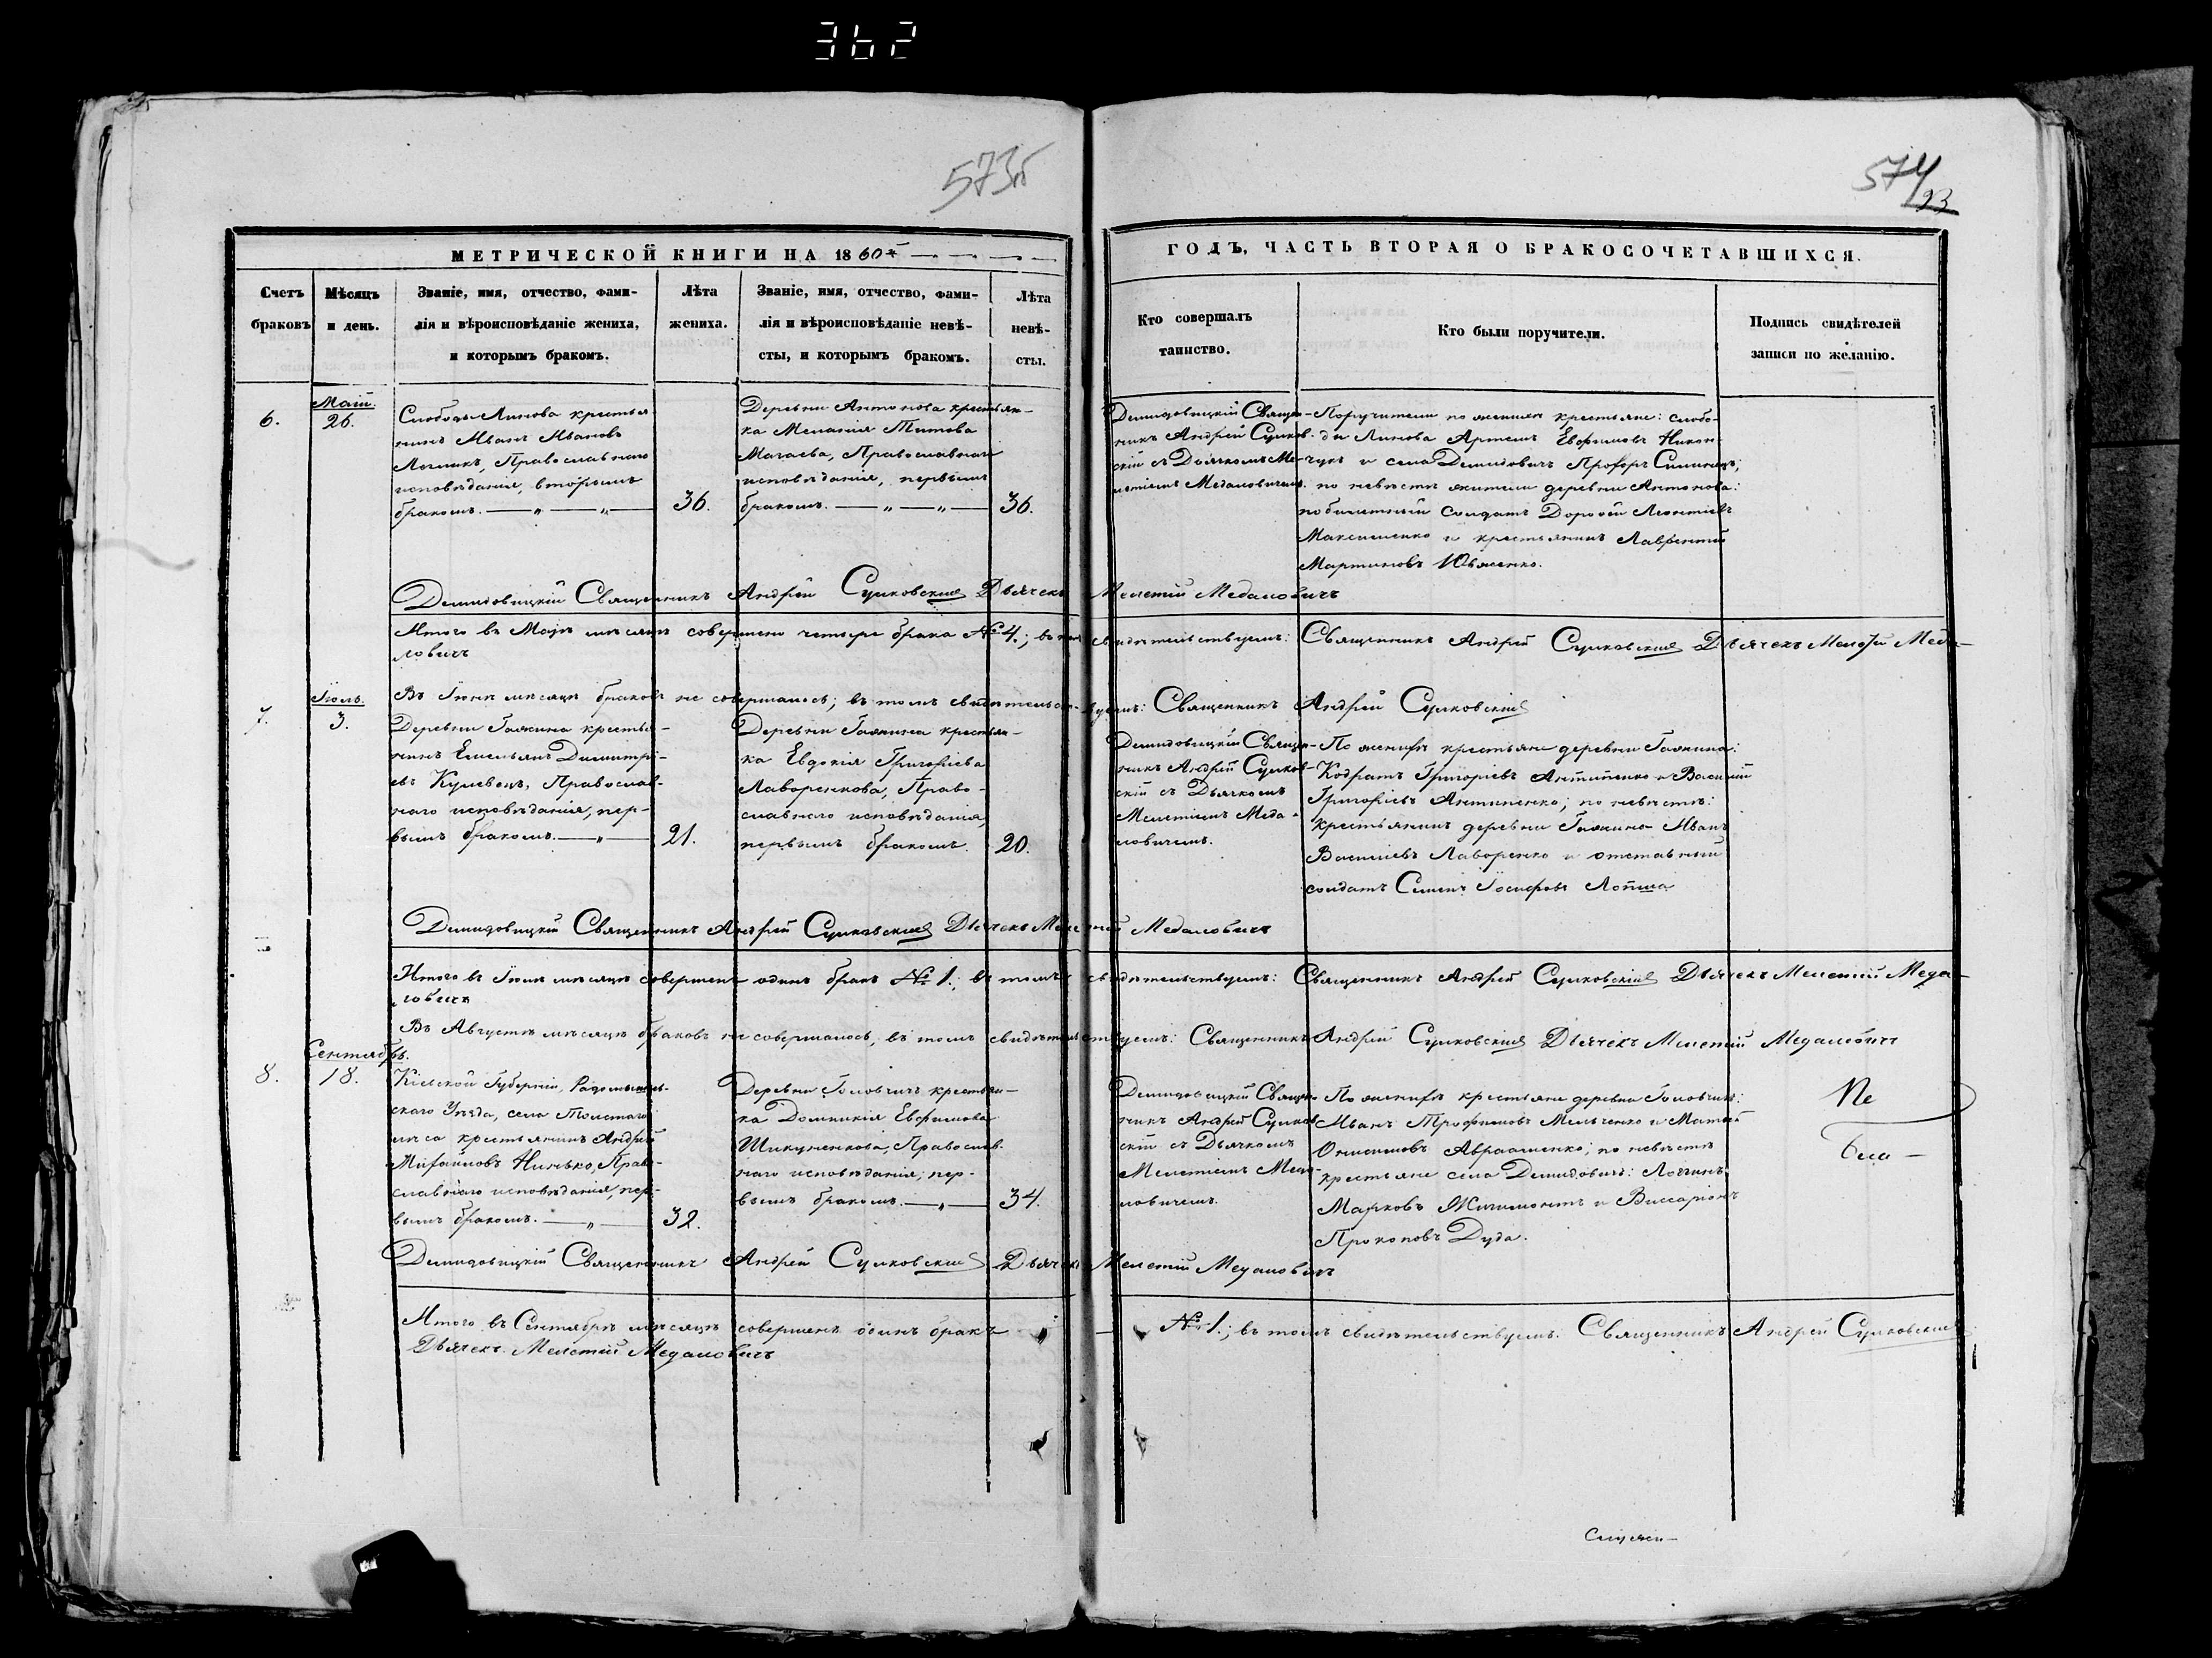 362
573б
574
93
МЕТРИЧЕСКОЙ КНИГИ НА 1860й
ГОДЪ, ЧАСТЬ ВТОРАЯ О БРАКОСОЧЕТАВШИХСЯ.
Счетъ
браковъ
Мѣсяцъ
и день.
Званіе, имя, отчество, фами-
лія и вѣроисповѣданіе жениха,
и которымъ бракомъ.
Лѣта
жениха.
Званіе, имя, отчество, фами-
лія и вѣроисповѣданіе невѣ-
сты, и которымъ бракомъ.
Лѣта
невѣ-
сты.
Кто совершалъ
таинство.
Кто были поручители.
Подпись свидѣтелей
записи по желанію.
6.
Маій.
26.
Слободы Линова крестья
нинъ Иванъ Ивановъ
Православнаго
исповѣданія, вторымъ
бракомъ.
36.
Деревни Антонова крестьян-
ка Меланія Титова
Магаева, Православнаго
исповѣданія, первымъ
бракомъ.
36.
Демидовицкій Священ-
никъ Андрей Сулков-
скій съ Дьячкомъ Ме-
летіемъ Медаловичемъ.
Поручители по женихѣ крестьяне: слобо-
ды Линова Артемъ Евфимовъ Никон-
чукъ и села Демидовичъ Прохоръ
по невѣстѣ жители деревни Антонова:
побилетный Солдатъ Дорофей Леонтіевъ
Максименко и крестьянинъ Лаврентій
Мартиновъ
Демидовицкій Священникъ Андрей Сулковскій Дьячекъ Мелетій Медаловичъ
Итого въ Маѣ мѣсяцѣ совершено четыре брака № 4.; въ томъ свидѣтельствуемъ: Священникъ Андрей Сулковскій Дьячекъ Мелетій Меда-
ловичъ
Въ Іюнѣ мѣсяцѣ браковъ не совершалось; въ томъ свидѣтельствуемъ: Священникъ Андрей Сулковскій
7.
Іюль.
3.
Деревни Галкина крестья-
нинъ Емельянъ Димитрі-
евъ Кулевецъ, Православ-
наго исповѣданія, пер-
вымъ бракомъ.
21.
Деревни Галкина крестьян-
ка Евдокія Григоріева
Лаворенкова, Право-
славнаго исповѣданія,
первымъ бракомъ.
20.
Демидовицкій Священ-
никъ Андрей Сулков-
скій съ Дьячкомъ
Мелетіемъ Меда-
ловичемъ.
По женихѣ крестьяне деревни Галкина:
Кодратъ Григоріевъ Антипенко и Василій
Григоріевъ Антипенко; по невѣстѣ:
крестьянинъ деревни Галкина Иванъ
Василіевъ Лаворенко и отставный
солдатъ Симеонъ Іосифовъ Лапша
Демидовицкій Священникъ Андрей Сулковскій Дьячекъ Мелетій Медаловичъ
Итого въ Іюлѣ мѣсяцѣ совершенъ одинъ бракъ № 1.; въ томъ свидѣтельствуемъ: Священникъ Андрей Сулковскій Дьячекъ Мелетій Меда-
ловичъ
Въ Августѣ мѣсяцѣ браковъ не совершалось, въ томъ свидѣтельствуемъ: Священникъ Андрей Сулковскій Дьячекъ Мелетій Медаловичъ
8.
Сентябрь.
18.
Кіевской Губерніи, Радомысль-
скаго Уѣзда, села Толстаго
лѣса крестьянинъ Андрей
Михайловъ Нинько, Право-
славнаго исповѣданія, пер-
вымъ бракомъ.
32.
Деревни Головчичъ крестьян-
ка Домникія Евфимова
Шикуненкова, Православ-
наго исповѣданія, пер-
вымъ бракомъ.
34.
Демидовицкій Священ-
никъ Андрей Сулков-
скій съ Дьячкомъ
Мелетіемъ Меда-
ловичемъ.
По женихѣ крестьяне деревни Головчичъ:
Иванъ Трофимовъ Мельченко и Матвій
Онисимовъ Авраменко; по невѣстѣ
крестьяне села Демидовичъ: Логгинъ
Марковъ Жигимонтъ и Виссаріонъ
Прокоповъ Дуда.
Демидовицкій Священникъ Андрей Сулковскій Дьячекъ Мелетій Медаловичъ
Итого въ Сентябрѣ мѣсяцѣ совершенъ одинъ бракъ № 1.; въ томъ свидѣтельствуемъ: Священникъ Андрей Сулковскій
Дьячекъ Мелетій Медаловичъ